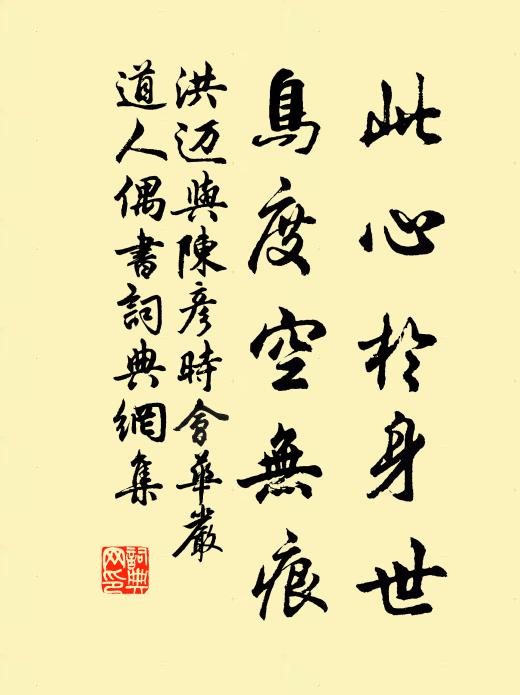 此心於身世
鳥度空無痕
洪迈與陳彦時會華嚴
道人偶書詞典網集
詞典
网印